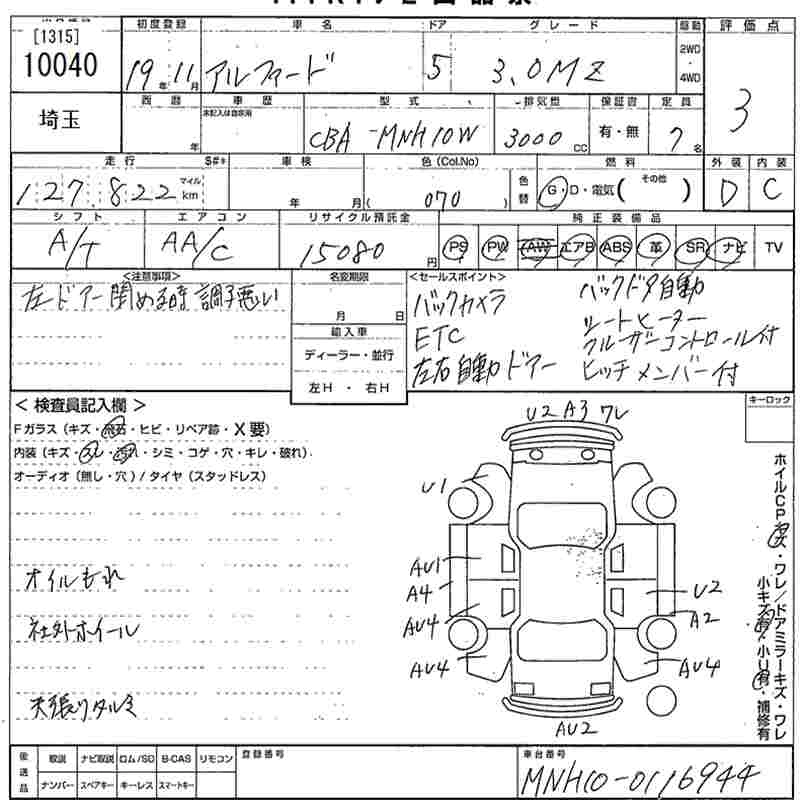 [1315]
10040
埼玉
初度登録
19年11月
車名
アルファード
ドア
5
グレード
3.0MZ
駆動
2WD
・
4WD
評価点
3
西暦
年
車歴
未記入は自家用
型式
CBA-MNH10W
排気量
3000cc
保証書
有・無
定員
7名
走行
S#*
127,822
マイル
km
車検
年 月
色(Col.No)
( 070 )
色替
燃料
G・D・電気( その他 )
外装
D
内装
C
シフト
A/T
エアコン
AA/C
リサイクル預託金
15080円
純正装備品
PS PW AW エアB ABS 革 SR ナビ TV
<注意事項>
左ドアー閉める時調子悪い
名変期限
月 日
輸入車
ディーラー・並行
左H・右H
<セールスポイント>
バックカメラ
ETC
左右自動ドアー
バックドア自動
シートヒーター
クルーザーコントロール付
ヒッチメンバー付
<検査員記入欄>
Fガラス(キズ・飛石・ヒビ・リペア跡・X要)
内装(キズ・スレ・汚れ・シミ・コゲ・穴・キレ・破れ)
オーディオ(無し・穴)/タイヤ(スタッドレス)
オイルもれ
社外ホイール
天張りタルミ
キーロック
U2 A3 ワレ
U1
AU1
A4
AU4
AU4
U2
A2
AU4
AU2
ホイルCPキズ・ワレ/ドアミラーキズ・ワレ
小キズ有・小U有・補修有
後送品
取説 ナビ取説 ロム/SD B-CAS リモコン
ナンバー スペアキー キーレス スマートキー
登録番号
車台番号
MNH10-0116944